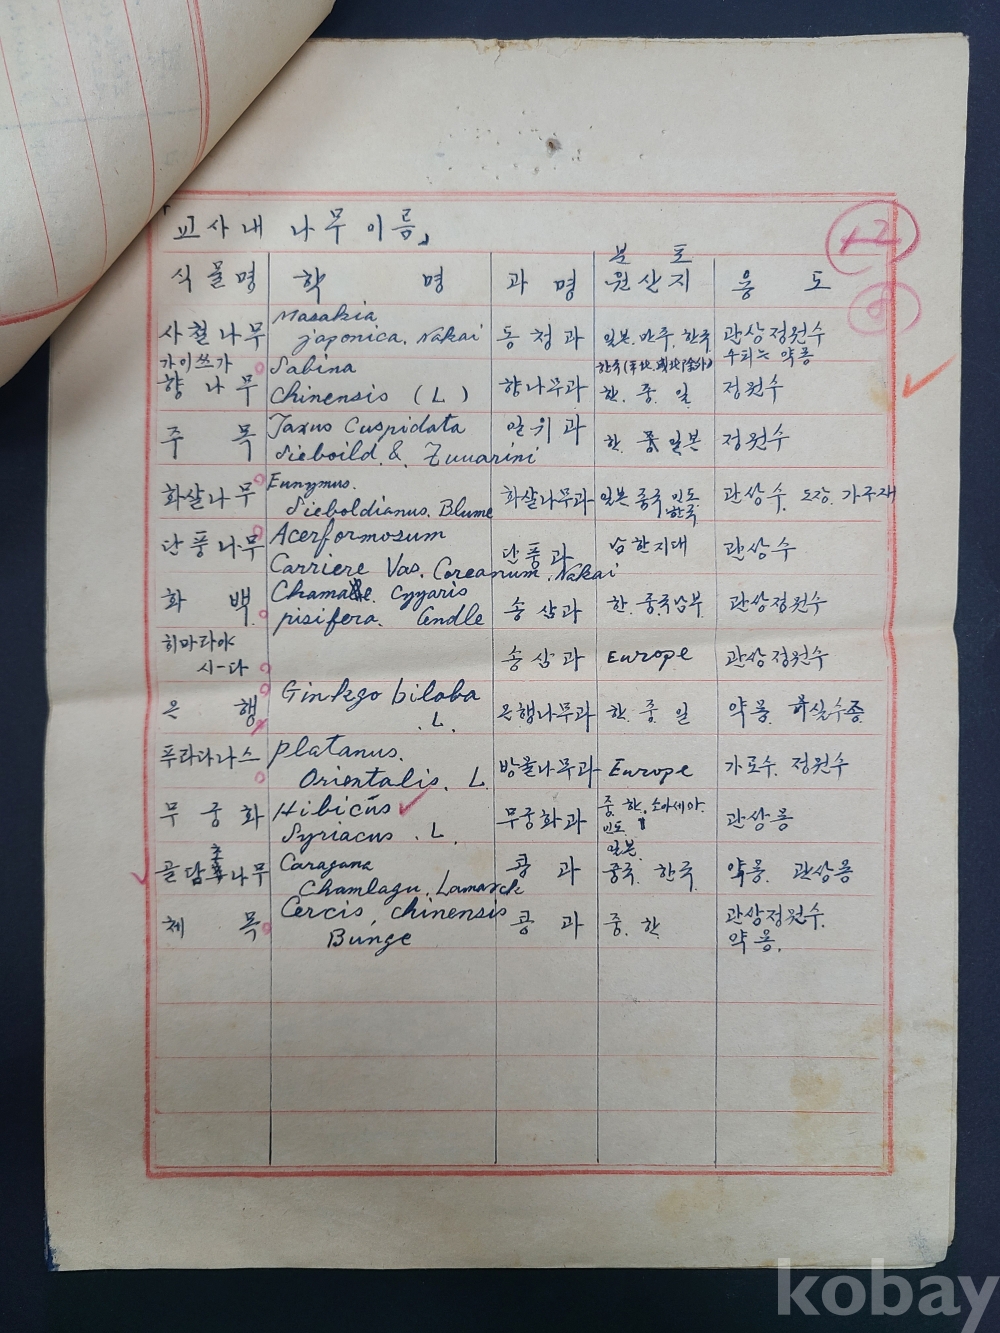 「교사내 나무이름」
12
분포
식물명 학명 과명 원산지 용도
Masakia
사철나무 japonica. Nakai 동청과 일본. 만주. 한국 관상정원수
수피는 약용
가이쓰가 Sabina
향나무 chinensis (L) 향나무과 한. 중. 일 정원수
주목 Taxus Cuspidata 일위과 한. 일본 정원수
Sieboild. & Zuuarini
Eunymus.
화살나무 Sieboldianus. Blume 화살나무과 일본 중국 인도 한국 관상수. 도장. 가구재
단풍나무 Acerformosum 단풍과 남한지대 관상수
Carriere Vas. Coreanum. Nakai
화백 Chamae. Cyyaris
pisifera. Endle 송삼과 한. 중국남부 관상정원수
히마라야
시-다 송삼과 Europe 관상정원수
은행 Ginkgo biloba
L. 은행나무과 한. 중. 일 약용. 수종
푸라타나스 Platanus.
Orientalis. L. 방울나무과 Europe 가로수. 정원수
무궁화 Hibicus 무궁화과 중. 한. 소아세아. 관상용
Syriacus. L. 인도.
일본.
골담초나무 Caragana 콩과 중국. 한국 약용. 관상용
Chamlagu. Lamarck
체목 Cercis, chinensis 콩과 중. 한 관상정원수.
Bunge 약용.
kobay